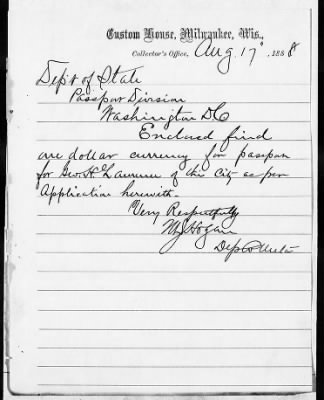 Custom House, Milwaukee, Wis.,
Collector's Office, Aug 17", 1888
Dept of State
Passport Division
Washington DC
Enclosed find
one dollar currency for passport
for Geo. H. of this City as per
Application herewith.
Very Respectfully
Hogan
Dep